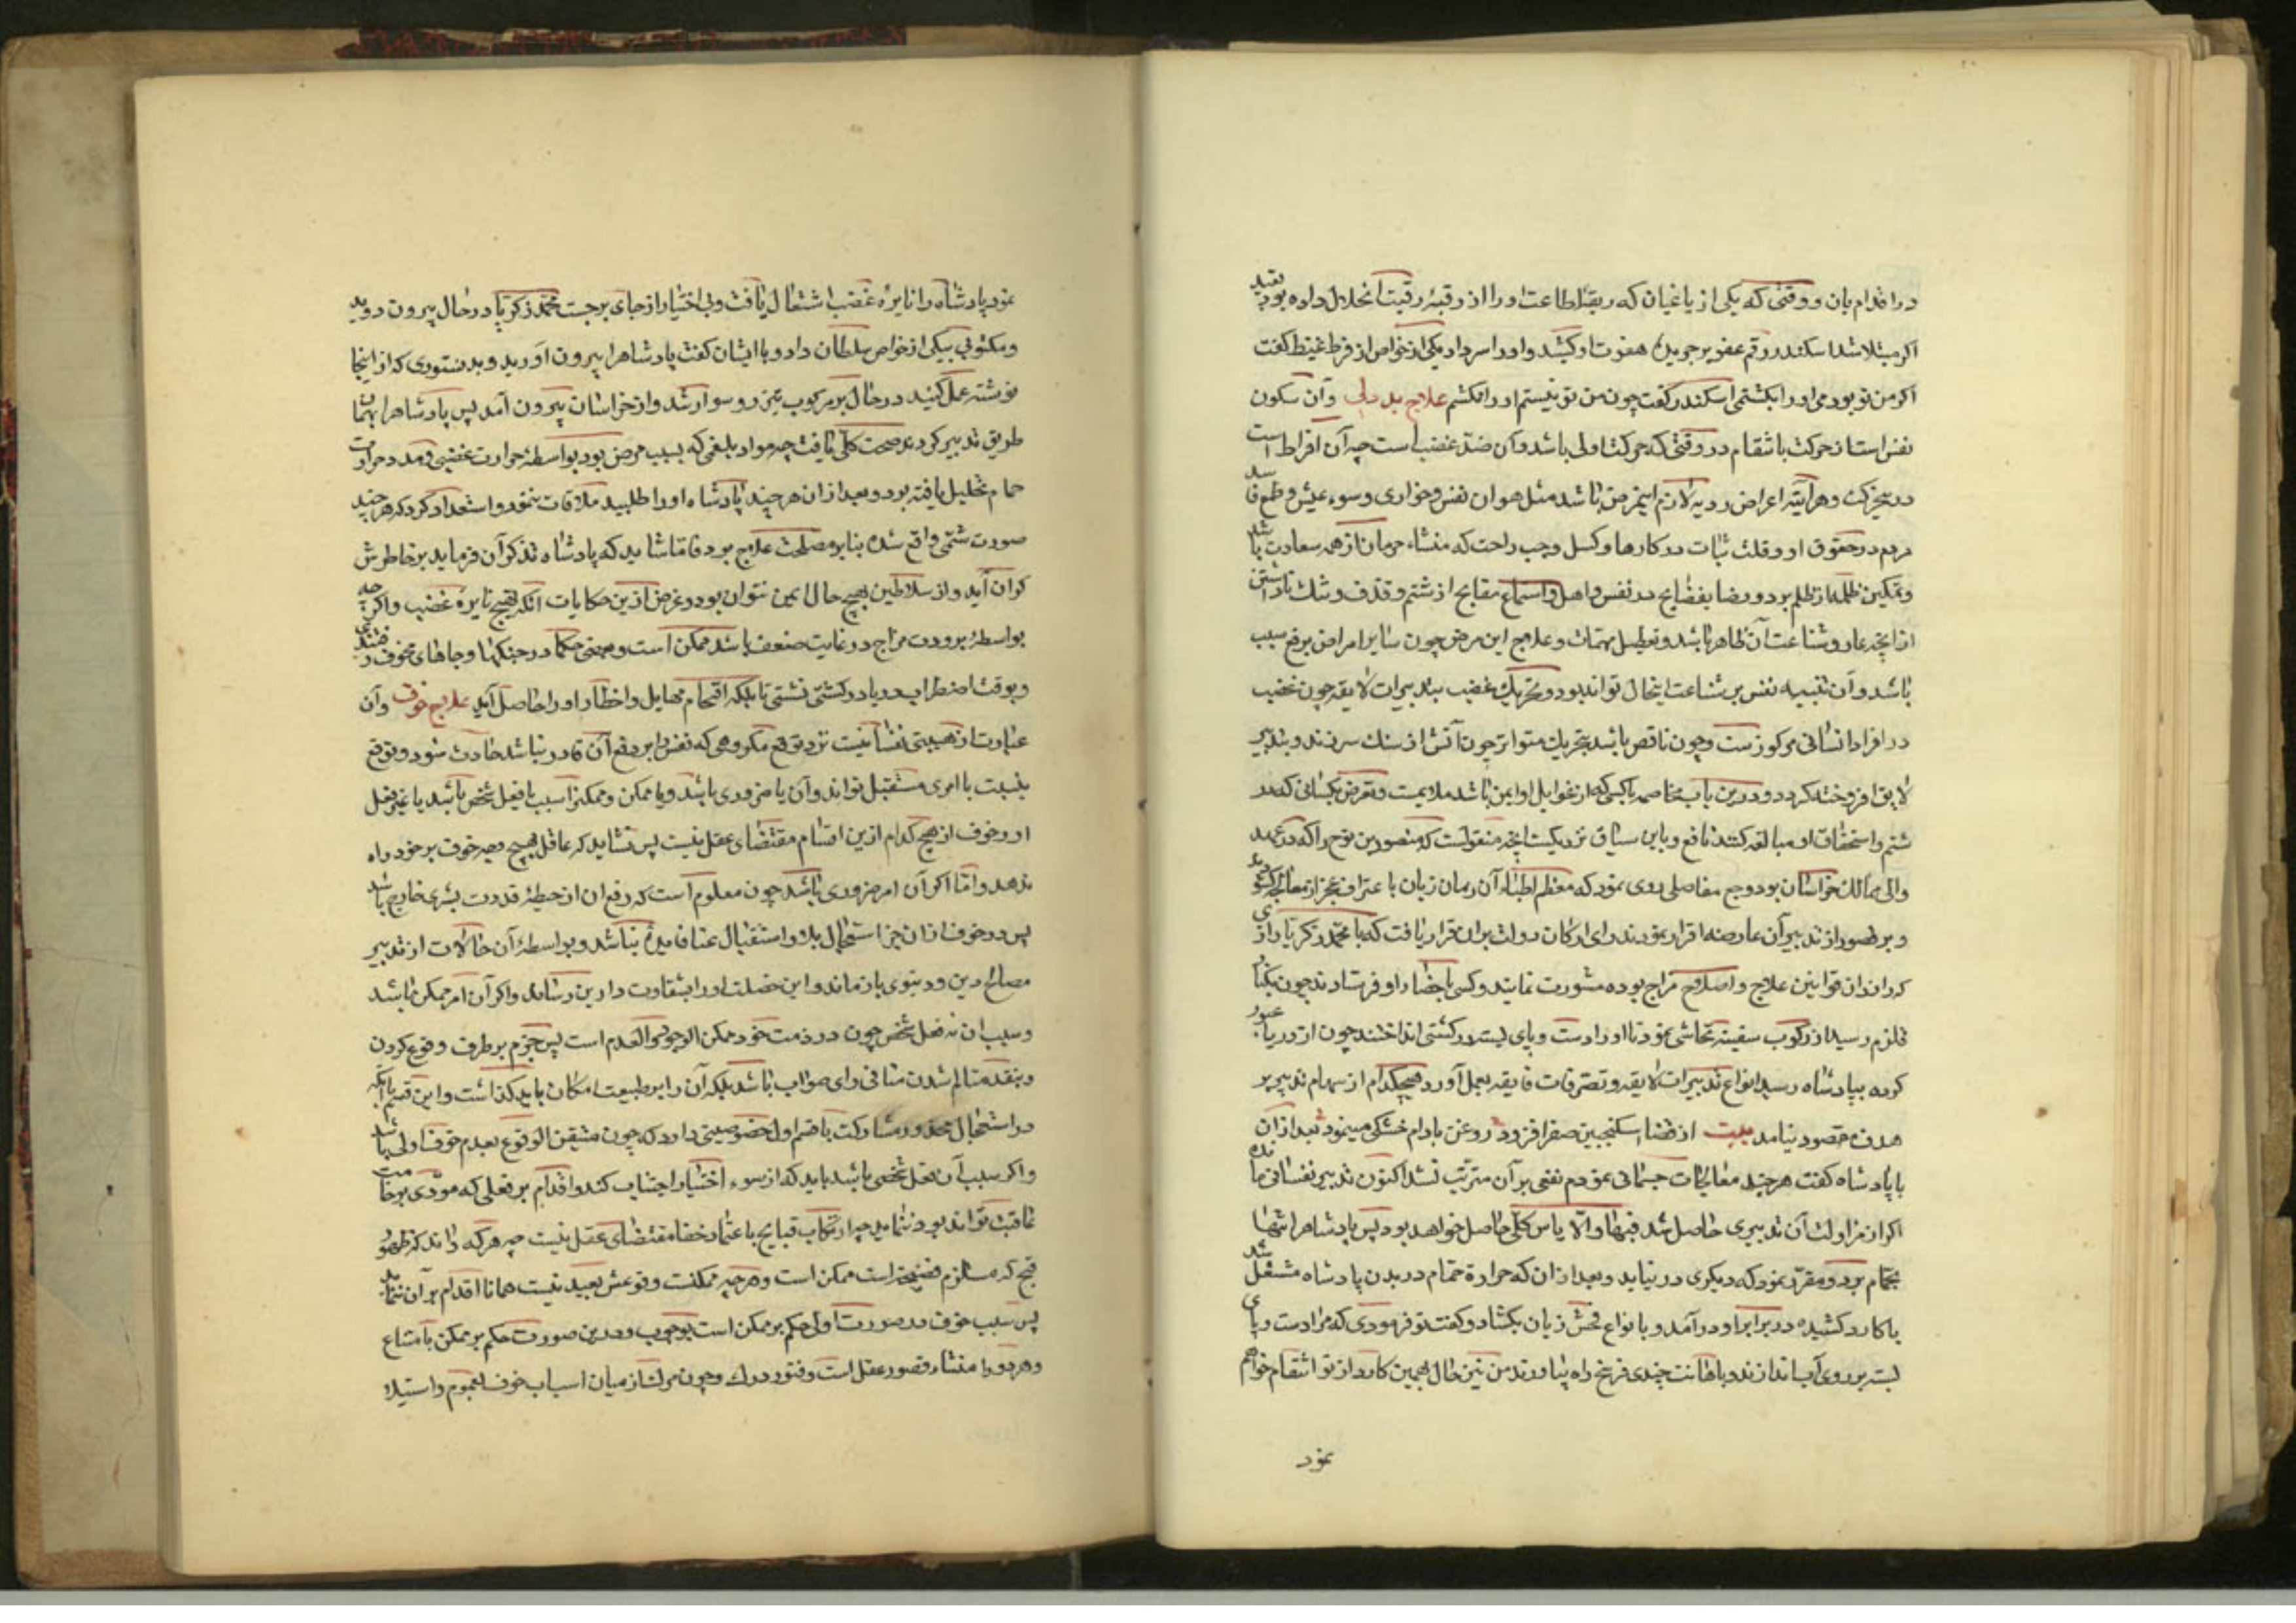 در اقدام بان و وقتی که یکی از یاغیان که ربقهٔ اطاعت او را از رقبهٔ رقیت انحلال داده بود بقید
اکر مبتلا شد اسکندر رقم عفو بر جریدهٔ هفوت او کشید و او را سر داد یکی از خواص از فرط غیظ کفت
اکر من تو بودمی او را بکشتمی اسکندر کفت چون من تو نیستم او را نکشتم علاج بد دلی وآن سکون
نفس است از حرکت بانتقام در وقتی که حرکت اولی باشد وآن ضد غضب است چه آن افراط است
در حرکت وهر آینه اعراض ردیه لازم این مرض باشد مثل هوان نفس وخواری وسوء عیش وطمع فاسد
مردم در حقوق او وقلت ثبات در کارها وکسل وحب راحت که منشاء حرمان از همه سعادت باشد
وتمکین ظلمه از ظلم بر او ورضا بفضایح در نفس واهل واستماع مقابح از شتم وقذف وننک ناداشتن
از انچه عار وشناعت آن ظاهر باشد وتعطیل مهمات وعلاج این مرض چون سایر امراض برفع سبب
باشد وآن تنبیه نفس بر شناعت اینحال تواند بود وتحریک غضب بتدبیرات لایقه چون غضب
در افراد انسانی مرکوزست وچون ناقص باشد بتحریک متواتر چون آتش از سنک سر زند وبتدبیر
لایق افروخته کردد ودرین باب مخاصمه باکسی که از غوایل او ایمن باشد ملایمست وتعرض بکسانی که در
شتم واستخفاف او مبالغه کنند نافع وباین سیاق نزدیکست انچه منقولست که منصور بن نوح را که در عهد
والی ممالک خراسان بود وجع مفاصلی روی نمود که معظم اطباء آن زمان زبان باعتراف عجز از معالجه کشودند
وبر قصور از تدبیر آن عارضه اقرار نمودند رای ارکان دولت بران قرار یافت که با محمد زکریا رازی
که رازدان قوانین علاج واصلاح مزاج بوده مشورت نمایند وکسی باحضار او فرستادند چون بکنار
قلزم رسید از رکوب سفینه تحاشی نمود تا او را دست وپای بسته در کشتی انداختند چون از دریا عبور
کرده بپادشاه رسید انواع تدبیرات لایقه وتصرفات فایقه بعمل آورد هیچکدام از سهام تدبیر بر
هدف مقصود نیامد بیت از قضا سکنجبین صفرا فزود روغن بادام خشکی مینمود بعد از آن
با پادشاه کفت هر چند معالجات جسمانی نمودم نفعی بر آن مترتب نشد اکنون تدبیر نفسانی مانده
اکر از مزاولت آن تدبیری حاصل شد فبها والا یاس کلی حاصل خواهد بود پس پادشاه را تنها
بحمام برد ومقرر نمود که دیکری در نیاید وبعد از ان که حرارة حمام در بدن پادشاه مشتعل شد
با کارد کشیده در برابر او در آمد وبا نواع فحش زبان بکشاد وکفت تو فرمودی که مرا دست وپای
بسته بر روی آب اندازند وباهانت چندی فرسخ راه بیاورند من نیز حال بهمین کارد از تو انتقام خواهم
نمود
نمود پادشاه را نایرهٔ غضب اشتعال یافت وبی اختیار از جای برجست محمد زکریا در حال بیرون دوید
ومکتوبی بیکی از خواص سلطان داد وبا ایشان کفت پادشاه را بیرون اورید وبدستوری که از اینجا
نوشته عمل کنید در حال بر مرکوب تیز رو سوار شد واز خراسان بیرون آمد پس پادشاه را بهمان
طریق تدبیر کردند صحت کلی یافت چه مواد بلغمی که بسبب مرض بود بواسطهٔ حرارت غضبی ومدد حرارت
حمام تحلیل یافته بود وبعد از ان هر چند پادشاه او را طلبید ملاقات ننمود واستعذار کرد که هر چند
صورت شتمی واقع شده بنابر مصلحت علاج بود فاما شاید که پادشاه تذکر آن فرماید بر خاطرش
کران آید واز سلاطین بهیچ حال ایمن نتوان بود وغرض ازین حکایات انکه تهییج نایرهٔ غضب واکرچه
بواسطهٔ برودت مزاج در غایت ضعف باشد ممکن است وبعضی حکما در جنکها وجاهای مخوف رفتندی
وبوقت اضطراب دریا در کشتی نشستی تا ملکه اقتحام مهایل واخطار او را حاصل آید علاج خوف وآن
عبارت از هیئتی نفسانیست نزد توقع مکروهی که نفس را بر دفع آن قادر نباشد حادث شود وتوقع
بنسبت با امری مستقبل تواند وآن یا ضروری باشد ویا ممکن وممکن را سبب یا فعل شخص باشد یا غیر فعل
او وخوف از هیچ کدام ازین اقسام مقتضای عقل نیست پس نشاید که عاقل بهیچ وجه خوف بر خود راه
ندهد واما اکر آن امر ضروری باشد چون معلوم است که رفع ان از حیطهٔ قدرت بشری خارج باشد
پس در خوف از ان جز استعجال بلا واستقبال عنا فایدهٔ نباشد وبواسطهٔ آن حالات از تدبیر
مصالح دین ودنیوی باز ماند واین خصلت او را بشقاوت دارین رساند واکر آن امر ممکن باشد
وسبب ان نه فعل شخص چون در ذمت خود ممکن الوجود والعدم است پس جزم بر طرف وقوع کردن
وبنقد متالم شدن منافی رای صواب باشد بلکه آن را بر طبیعت امکان باید کذاشت واین قسم با آنکه
در استعجال محذور مشارکت با قسم اول خصوصیتی دارد که چون متیقن الوقوع بعدم خوف اولی باشد
واکر سبب آن فعل شخصی باشد باید که از سوء اختیار اجتناب کند واقدام بر فعلی که مودی بوخامت
عاقبت تواند بود ننماید چه ارتکاب قبایح باعتماد خفا مقتضای عقل نیست چه هر که داند که ظهور
قبح که مستلزم فضیحة است ممکن است وهر چه ممکنست وقوعش بعید نیست همانا اقدام بر آن ننماید
پس سبب خوف در صورت اول حکم بر ممکن است بوجوب ودرین صورت حکم بر ممکن بامتناع
وهر دو را منشاء قصور عقل است وفتور درک وچون مرک از میان اسباب خوف بعموم واستیلا